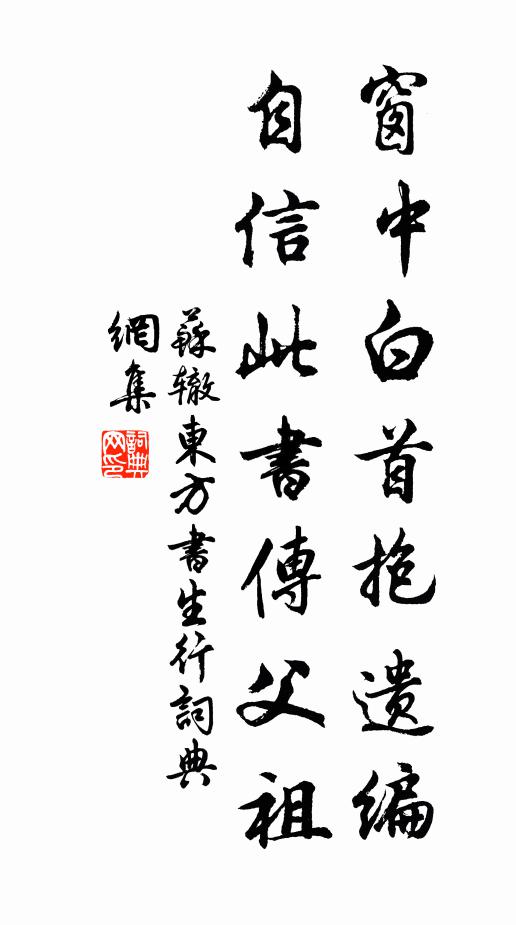 窗中白首抱遗编
自信此書傳父祖
蘇辙東方書生行詞典
網集
詞典
网印